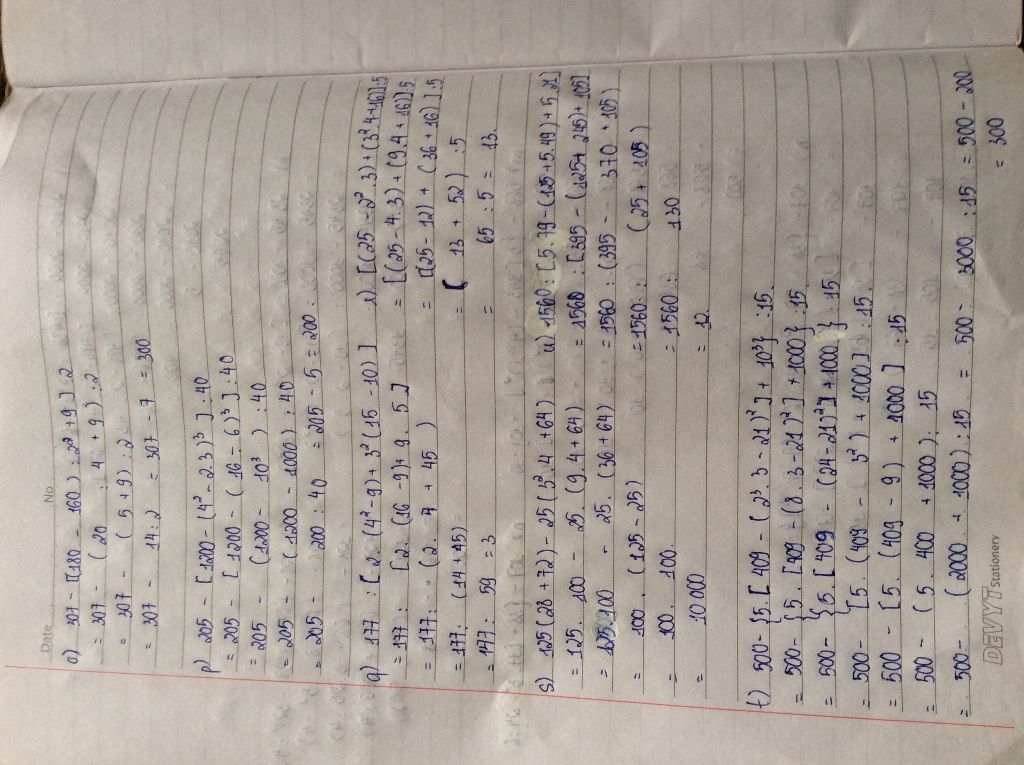 Date No
o) 307 - [(180 - 160) : 2² + 9] : 2
= 307 - (20 : 4 + 9) : 2
= 307 - (5 + 9) : 2
= 307 - 14 : 2 = 307 - 7 = 300
p) 205 - [1200 - (4² - 2.3)³] : 40
= 205 - [1200 - (16 - 6)³] : 40
= 205 - (1200 - 10³) : 40
= 205 - (1200 - 1000) : 40
= 205 - 200 : 40 = 205 - 5 = 200.
q) 177 : [2. (4² - 9) + 3² (15 - 10)]
= 177 : [2. (16 - 9) + 9. 5]
= 177 : (2. 7 + 45)
= 177 : (14 + 45)
= 177 : 59 = 3
r) [(25 - 2². 3) + (3². 4 + 16)] : 5
= [(25 - 4. 3) + (9. 4 + 16)] : 5
= [(25 - 12) + (36 + 16)] : 5
= [13 + 52) : 5
= 65 : 5 = 13.
s) 125 (28 + 72) - 25 (3². 4 + 64)
= 125. 100 - 25. (9. 4 + 64)
= 125. 100 - 25. (36 + 64)
= 100. (125 - 25)
= 100. 100.
= 10 000
u) 1560 : [5. 79 - (125 + 5. 49) + 5. 21]
= 1560 : [395 - (125 + 245) + 105]
= 1560 : (395 - 370 + 105)
= 1560 : (25 + 105)
= 1560 : 130
= 12.
t) 500 - {5. [409 - (2³. 3 - 21)²] + 10³} : 15.
= 500 - {5. [409 - (8. 3 - 21)²] + 1000} : 15
= 500 - {5. [409 - (24 - 21)²] + 1000} : 15
= 500 - [5. (409 - 3²) + 1000] : 15.
= 500 - [5. (409 - 9) + 1000] : 15
= 500 - (5. 400 + 1000) : 15
= 500 - (2000 + 1000) : 15 = 500 - 3000 : 15 = 500 - 200
= 300
DEVYT Stationery